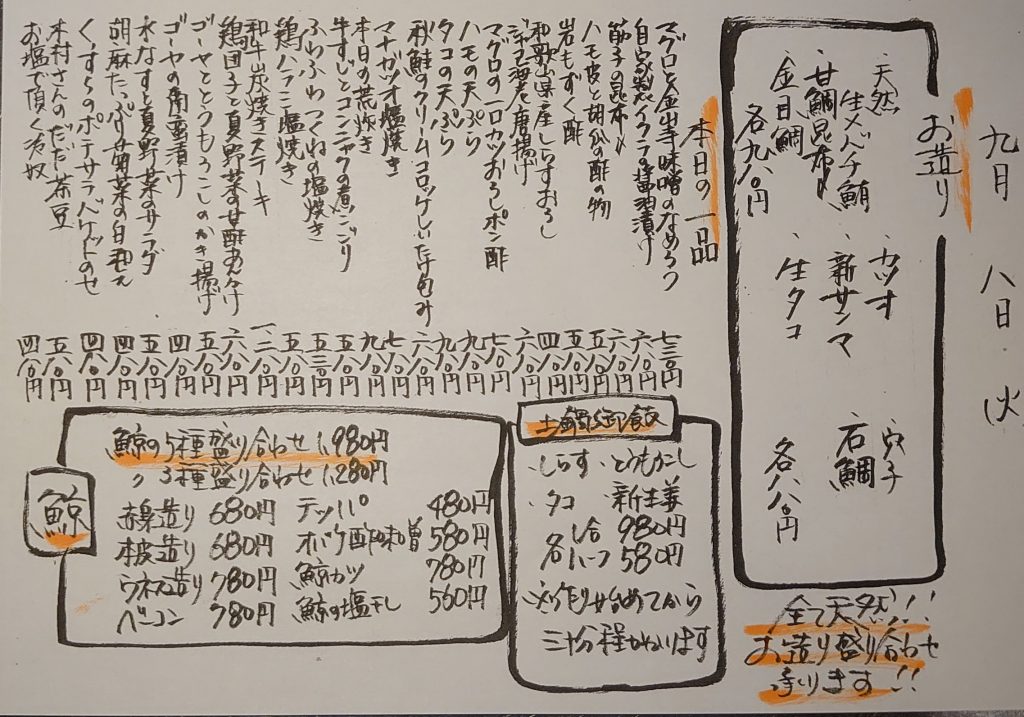 九月 八日 火
お造り
天然
生メバチ鮪
甘鯛昆布〆
金目鯛
各九八〇円
カツオ
新サンマ
生タコ
穴子
石鯛
各八八〇円
全て天然!!
お造り盛り合わせ
承ります!!
本日の一品
マグロと金山寺味噌のなめろう 七三〇円
自家製イクラの醤油漬け 六八〇円
筋子の昆布〆 六八〇円
ハモ皮と胡瓜の酢の物 五八〇円
岩もずく酢 四八〇円
和歌山県産しらすおろし
唐揚げ
マグロの一口カツおろしポン酢
ハモの天ぷら
タコの天ぷら
秋鮭のクリームコロッケしいたけ包み
マナガツオ塩焼き
本日の荒炊き
牛すじとコンニャクの煮こごり
ふわふわつくねの塩焼き
鶏ハラミ塩焼き
和牛炭焼きステーキ
鶏団子と夏野菜の甘酢あんかけ
ゴーヤととうもろこしのかき揚げ
ゴーヤの南蛮漬け
水なすと夏野菜のサラダ
胡麻たっぷり菊菜の白和え 四八〇円
くんすらのポテサラバケットのせ 四八〇円
木村さんのだだ茶豆 五八〇円
お塩で頂く冷奴 四八〇円
土鍋御飯
・しらす ・とうもろこし
・タコ ・新生姜
各 一合 980円
ハーフ 580円
※ご注文頂き始めてから
三十分程かかります
鯨
鯨の5種盛り合わせ 1,980円
〃 3種盛り合わせ 1,280円
赤身造り 680円 テッパ 480円
本皮造り 680円 オバケ酢味噌 580円
ウネス造り 780円 鯨カツ 780円
ベーコン 780円 鯨の塩干し 560円